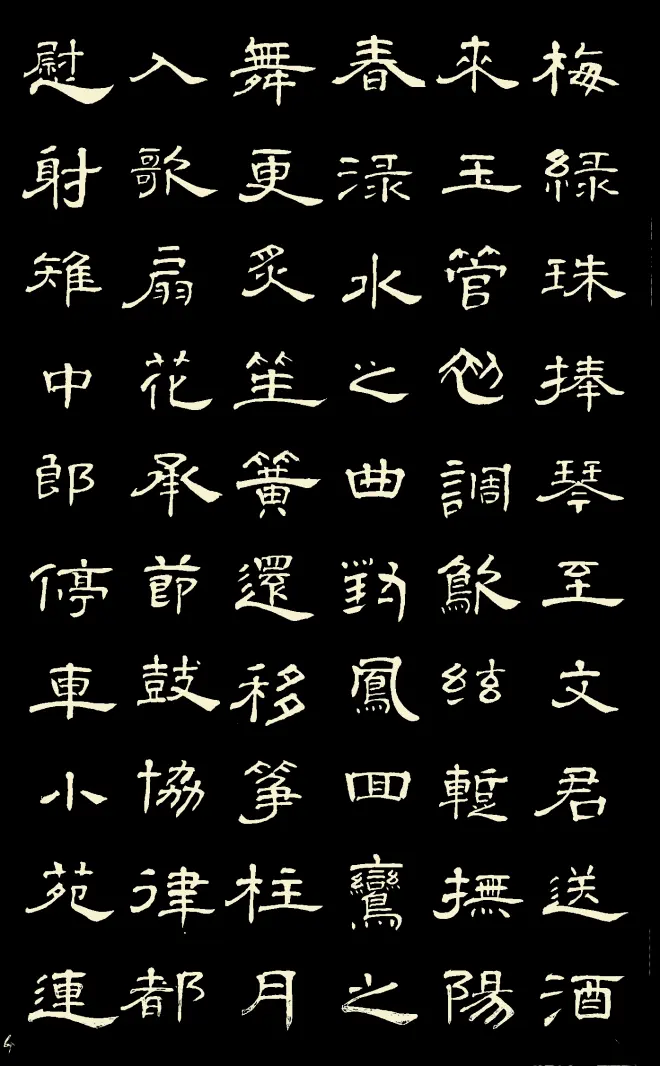 梅緑珠捧琴至文君送酒
來玉管初調鳴絃暫撫陽
春渌水之曲對鳳回鸞之
舞更炙笙簧還移筝柱月
入歌扇花承節鼓協律都
慰射雉中郎停車小苑連